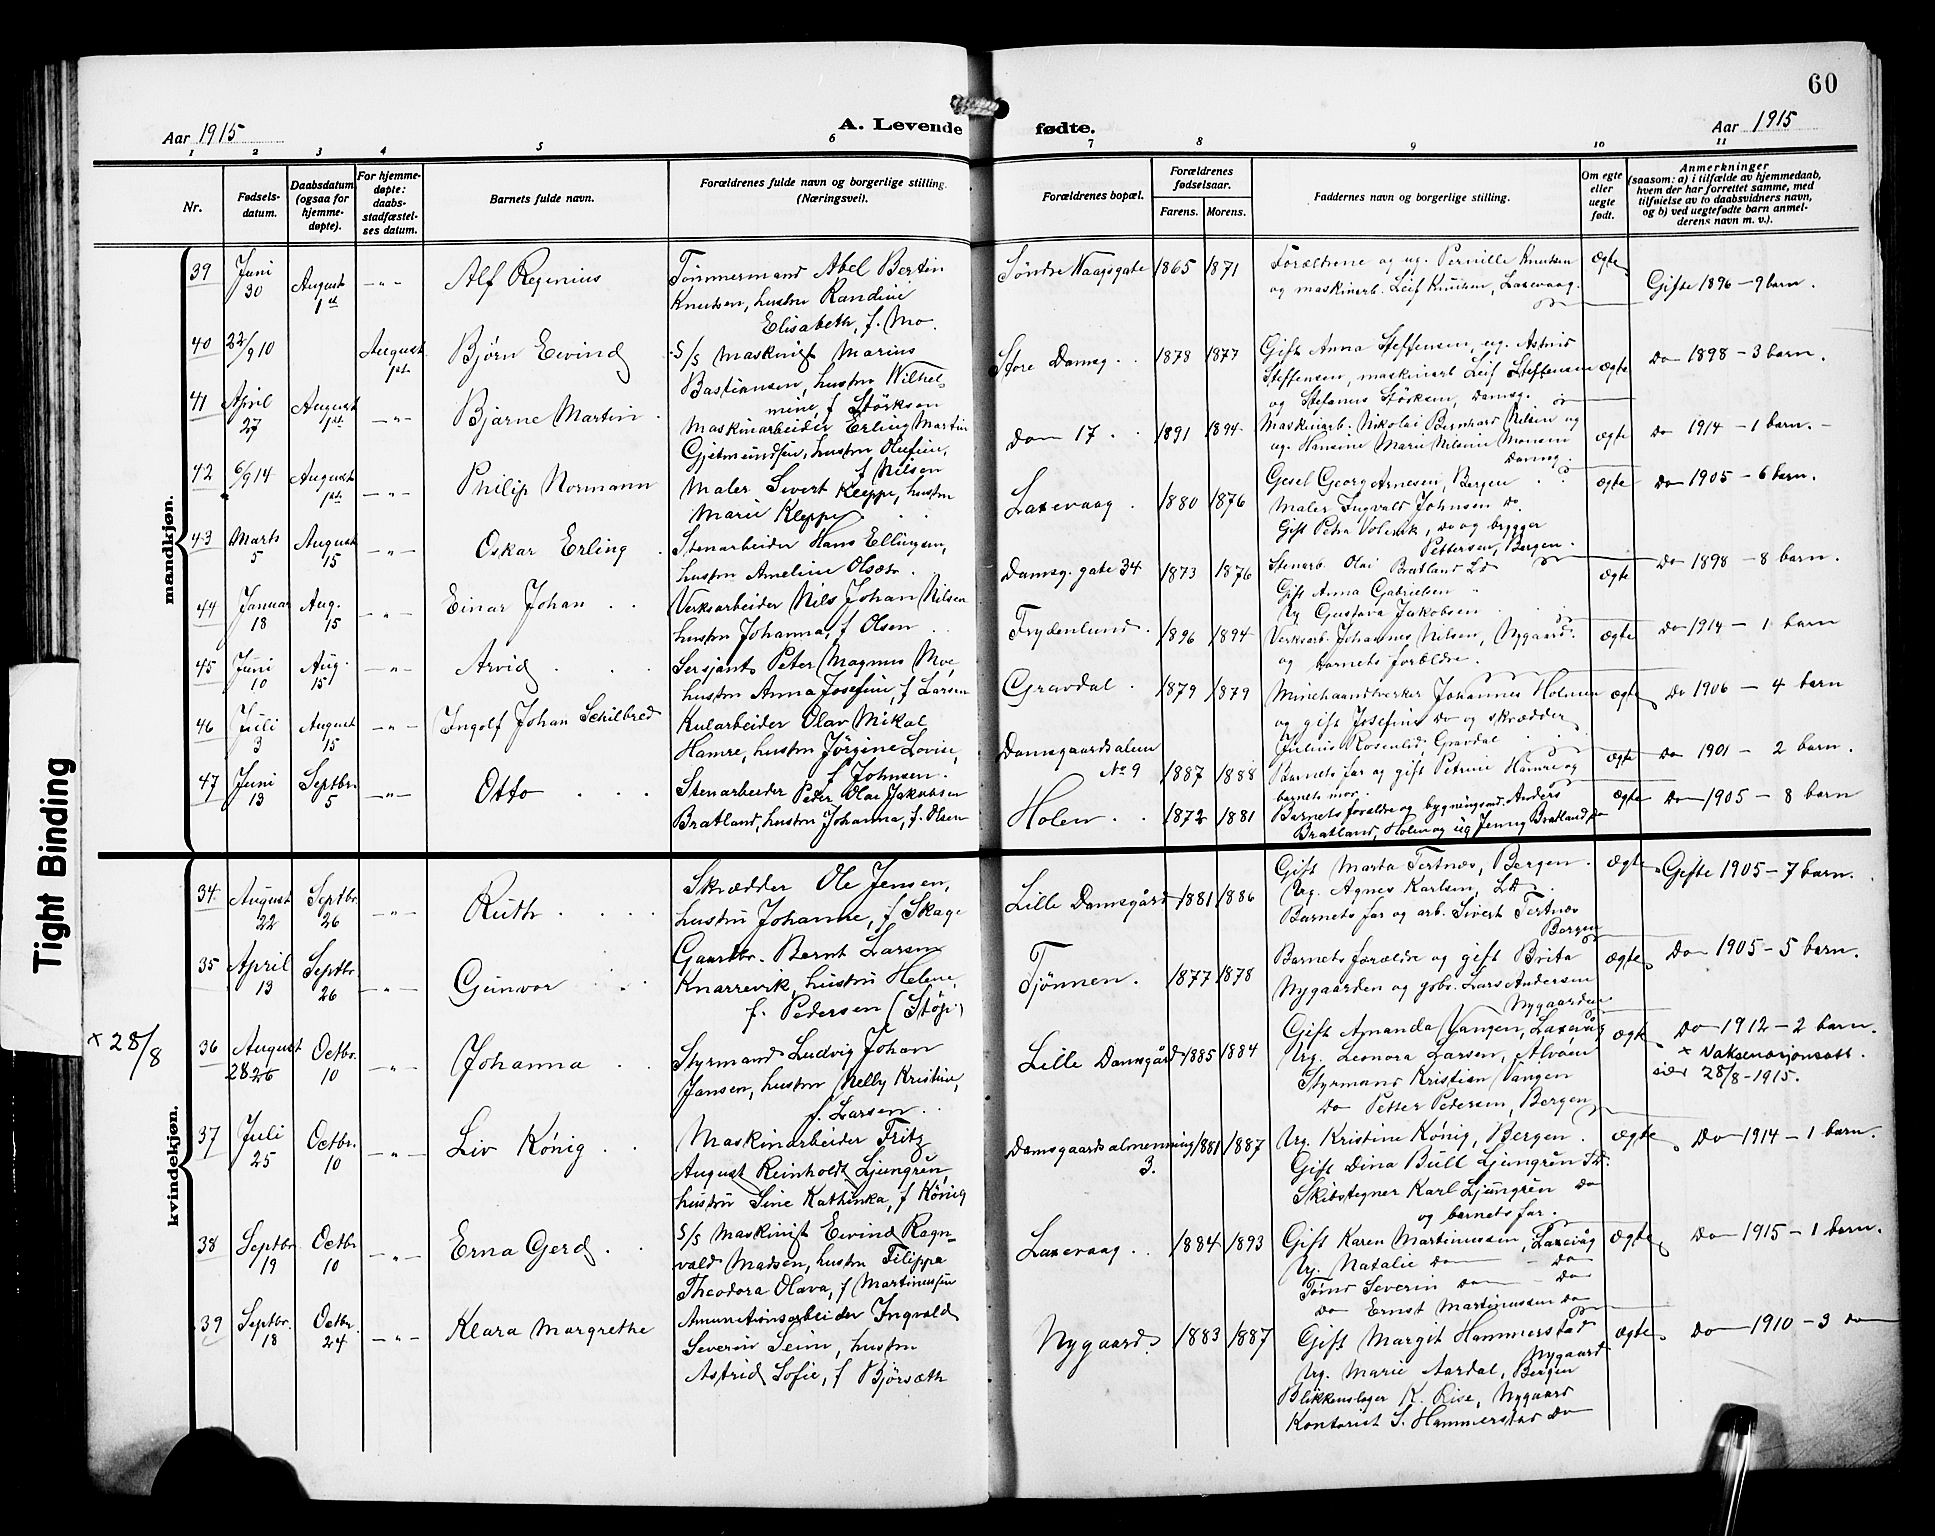 60
Aar 1915
A. Levende fødte.
Aar 1915
1 2 3 4 5 6 7 8 9 10 11
Nr.
Fødsels-
datum.
Daabsdatum
(ogsaa for
hjemme-
døpte).
For hjemme-
døpte:
daabs-
stadfæstel-
ses datum.
Barnets fulde navn.
Forældrenes fulde navn og borgerlige stilling.
(Næringsvei).
Forældrenes bopæl.
Forældrenes
fødselsaar.
Farens. Morens.
Faddernes navn og borgerlige stilling.
Om egte
eller
uegte
født.
Anmerkninger
(saasom: a) i tilfælde av hjemmedaab,
hvem der har forrettet samme, med
tilføielse av to daabsvidners navn,
og b) ved uegtefødte barn anmel-
derens navn m. v.).
mandkjøn.
39 Juni 30 August 1st — " — Alf Regenius
Tømmermand Abel Bertin
Knudsen, hustru Randine
Elisabeth, f. Mo.
Søndre Vaagsgate 1865 1871
Forældrene og ug. Pernille Knutsen
og maskinarb. Leif Knutsen, Laxevaag.
ægte Gifte 1896 – 9 barn.
40 22/9 10 August 1st. Bjørn Eivind
S/S Maskinist Marius
Bastiansen, hustru Wilhel-
mine, f Størksen
Store Damsg. 1878 1877
Gift Anna Steffensen, ug. Astrid
Steffensen, maskinarb Leif Steffensen
og Stefanus Størksen, Damsg.
ægte Do 1898 – 3 barn.
41 April 27 August 1st. — " — Bjarne Martin
Maskinarbeider Erling Martin
Gjetmundsen, hustru Olufine,
f Nilsen
Do 17 1891 1894
Maskinarb. Nikolai Bernhard Nilsen og
ug. Hansine Marie Nilsine Monsen
Damsg.
ægte Do 1914 – 1 barn. –
42 6/9 14 August 1st. — " — Philip Normann
Maler Sivert Kleppe, hustru
Marie Kleppe
Laxevaag 1880 1876
Gesel Georg Arnesen, Bergen
Maler Ingvald Johnsen Do
Gift Petra Volevik, do og brygger
Pettersen, Bergen.
ægte Do 1905 – 6 barn.
43 Marts 5 August 15 — " — Oskar Erling
Stenarbeider Hans Ellingsen,
hustru Ameline Olsdtr.
Damsg. gate 34 1873 1876
Stenarb. Olai Bratland Ld
Gift Anna Gabrielsen "
Ug Gustava Jakobsen
ægte Do 1898 – 8 barn.
44 Januar 18 Aug. 15 — " — Einar Johan
Verksarbeider Nils Johan Nilsen
hustru Johanna, f Olsen
Frydenlund. 1896 1894
Verksarb. Johannes Nilsen, Nygaard.
og barnets forældre.
ægte Do 1914 – 1 barn
45 Juni 10 Aug. 15 — " — Arvid
Sersjant Peter Magnus Moe,
hustru Anna Josefine, f Larsen
Gravdal 1879 1879
Minehaandverker Johannes Holmen
og gift Josefine Do og skrædder
Julius Rosenlid, Gravdal
ægte Do 1906 – 4 barn
46 Juli 3 August 15 — " — Ingolf Johan Schilbred
Kularbeider Olav Mikal
Hamre, hustru Jørgine Lovise,
f Johnsen.
Damsgaardsalmen No 9 1887 1888
Barnets far og gift Petrine Hamre og
barnets mor.
ægte Do 1901 – 2 barn.
47 Juni 13 Septbr. 5 — " — Otto
Stenarbeider Peder Olai Jakobsen
Bratland, hustru Johanna, f. Olsen
Holen 1872 1881
Barnets forældre og bygningssnd. Anders
Bratland, Holen og ug Jenny Bratland, do
ægte Do 1905 – 8 barn
kvindekjøn.
34 August 22 Septbr 26 — " — Ruth
Skrædder Ole Jensen,
hustru Johanne, f Skage
Lille Damsgård 1881 1886
Gift Marta Tertnæs, Bergen.
Ug. Agnes Karlsen, Ld
Barnets far og arb. Sivert Tertnæs
Bergen
ægte Gifte 1905 – 7 barn.
35 April 13 Septbr 26 — " — Gunvor
Gaardbr. Bernt Larsen
Knarrevik, hustru Helene,
f. Pedersen (Støp.)
Tjønnen. 1877 1878
Barnets forældre og gift Brita
Nygaarden og gbr. Lars Andersen
Nygaarden
ægte Do 1905 – 5 barn.
x 28/8
36 August 28 26 Octbr. 10 — " — Johanna
Styrmand Ludvig Johan
Jansen, hustru Nelly Kristine,
f. Larsen
Lille Damsgård 1885 1884
Gift Amanda Vangen, Laxevåg
Ug. Leonora Larsen, Alvøen
Styrmand Kristian Vangen
Do Petter Pedersen, Bergen
ægte Do 1912 – 2 barn.
x Vaksenasjonsatt.
sier 28/8 – 1915.
37 Juli 25 Octbr. 10 — " — Liv König
Maskinarbeider Fritz
August Reinholdt Ljungrén,
hustru Sine Kathinka, f König
Damsgaardsalmenning 3. 1881 1887
Ug. Kristine König, Bergen.
Gift Dina Bull Ljungrén Ld.
Skibstegner Karl Ljungrén Do
og barnets far.
ægte Do 1914 – 1 barn.
38 Septbr. 19 Octbr 10 — " — Erna Gerd
S/S Maskinist Eivind Ragn-
vald Madsen, hustru Filippa
Theodora Olava, f Martinussen
Laxevaag 1884 1893
Gift Karen Martinussen, Laxevåg
Ug. Natalie Do — Do
Tømr Severin Do — Do
Do Ernst Martinussen Do
ægte Do 1915 – 1 barn.
39 Septbr. 18 Octbr. 24 — " — Klara Margrethe
Amunitionsarbeider Ingvald
Severin Seim, hustru
Astrid Sofie, f Bjørsæth
Nygaard 1883 1887
Gift Margit Hammerstad
Nygaard
Ug. Marie Aardal, Bergen
Blikkenslager K. Rise, Nygaard
Kontorist S. Hammerstad Do
ægte Do 1910 – 3 Do
Tight Binding